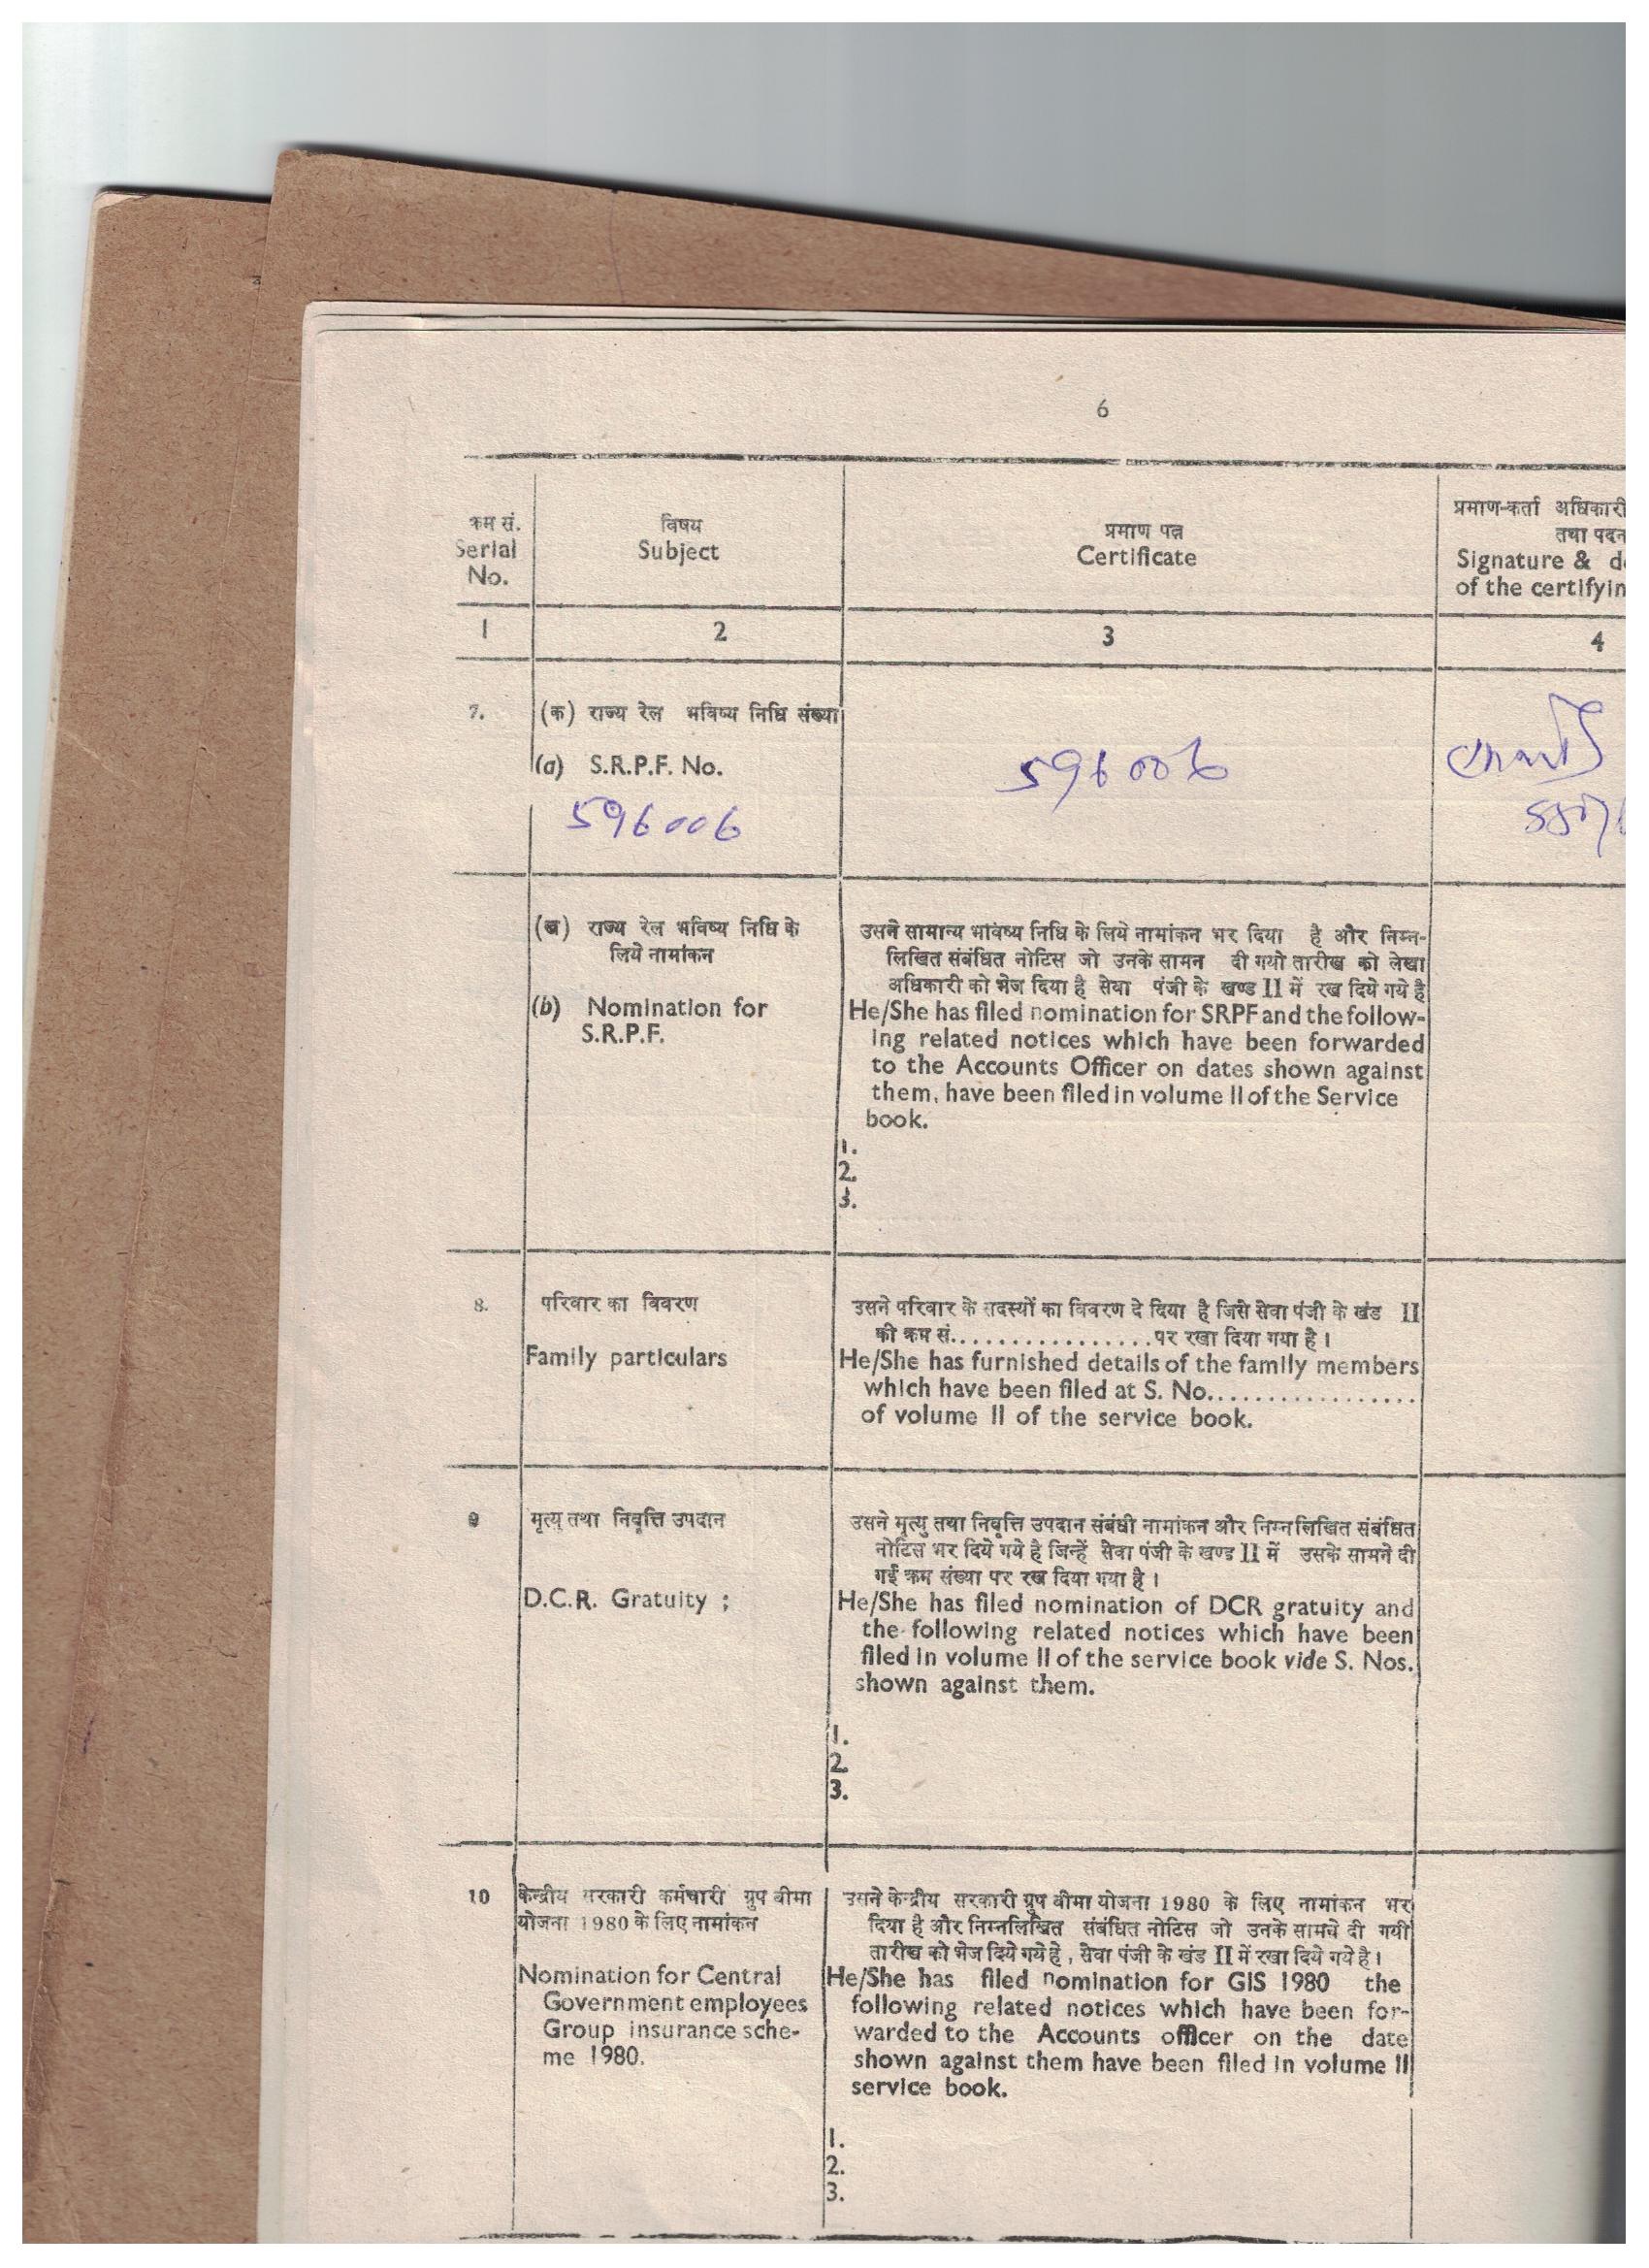 6
क्रम सं.
Serial
No.
विषय
Subject
प्रमाण पत्र
Certificate
प्रमाण-कर्ता अधिकारी
तथा पदन
Signature & de
of the certifyin
1
2
3
4
7.
(क) राज्य रेल भविष्य निधि संख्या
(a) S.R.P.F. No.
596006
596006
(ख) राज्य रेल भविष्य निधि के
लिये नामांकन
(b) Nomination for
S.R.P.F.
उसने सामान्य भविष्य निधि के लिये नामांकन भर दिया है और निम्न-
लिखित संबंधित नोटिस जो उनके सामन दी गयी तारीख को लेखा
अधिकारी को भेज दिया है सेवा पंजी के खण्ड II में रख दिये गये है
He/She has filed nomination for SRPF and the follow-
ing related notices which have been forwarded
to the Accounts Officer on dates shown against
them, have been filed in volume II of the Service
book.
1.
2.
3.
8.
परिवार का विवरण
Family particulars
उसने परिवार के सदस्यों का विवरण दे दिया है जिसे सेवा पंजी के खंड II
की क्रम सं.................पर रखा दिया गया है।
He/She has furnished details of the family members
which have been filed at S. No.................
of volume II of the service book.
9
मृत्यु तथा निवृत्ति उपदान
D.C.R. Gratuity ;
उसने मृत्यु तथा निवृत्ति उपदान संबंधी नामांकन और निम्नलिखित संबंधित
नोटिस भर दिये गये है जिन्हें सेवा पंजी के खण्ड II में उसके सामने दी
गई क्रम संख्या पर रख दिया गया है।
He/She has filed nomination of DCR gratuity and
the following related notices which have been
filed in volume II of the service book vide S. Nos.
shown against them.
1.
2.
3.
10
केन्द्रीय सरकारी कर्मचारी ग्रुप बीमा
योजना 1980 के लिए नामांकन
Nomination for Central
Government employees
Group insurance sche-
me 1980.
उसने केन्द्रीय सरकारी ग्रुप बीमा योजना 1980 के लिए नामांकन भर
दिया है और निम्नलिखित संबंधित नोटिस जो उनके सामने दी गयी
तारीख को भेज दिये गये हे, सेवा पंजी के खंड II में रखा दिये गये है।
He/She has filed nomination for GIS 1980 the
following related notices which have been for-
warded to the Accounts officer on the date
shown against them have been filed in volume II
service book.
1.
2.
3.